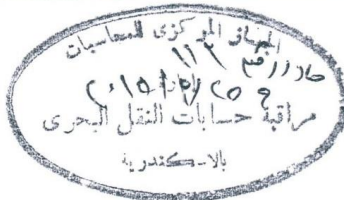 الجهاز المركزى للمحاسبات
صادر رقم ١١٢
٢٠١٥/٥/٢٥
مراقبة حسابات النقل البحرى
بالاسكندرية